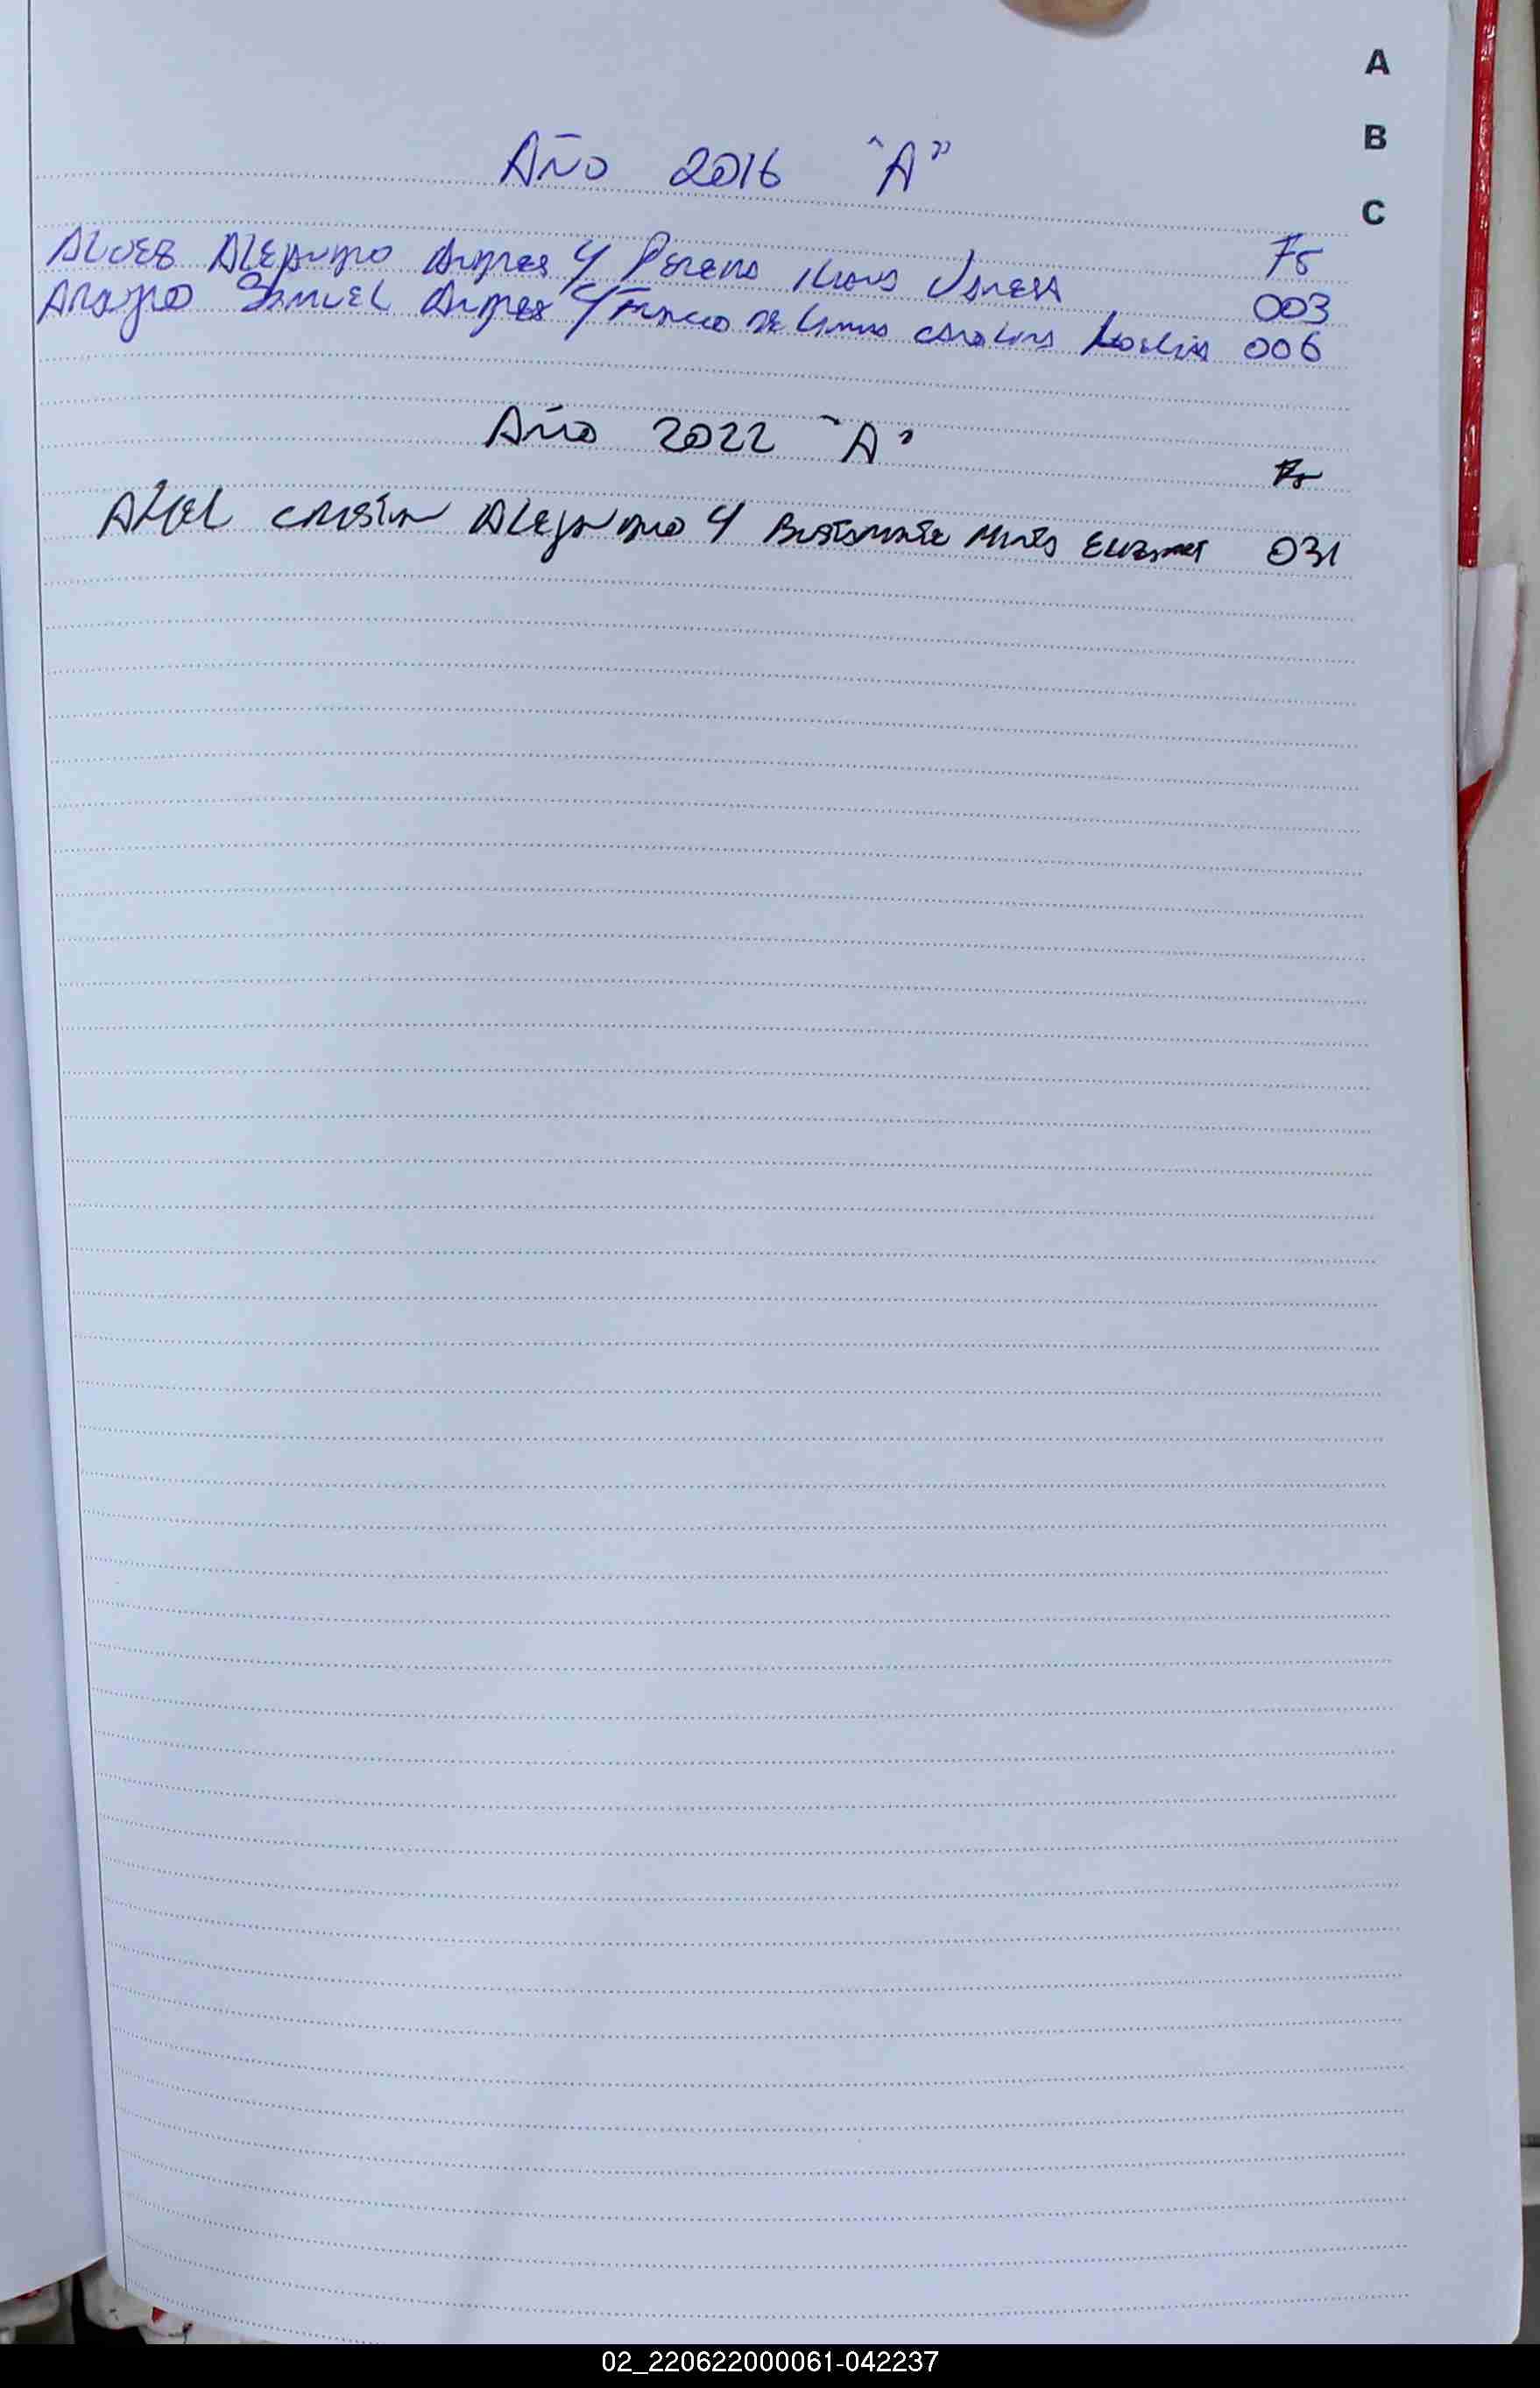 A
B
C
Año 2016 "A"
Fs
Alvez Alejandro Andres Y Pereno Vanesa 003
Araujo Samuel Andres Y Franco de Carolina Noelia 006
Año 2022 "A"
Fs
Cristian Alejandro Y Bustamante Elizabet 031
02_220622000061-042237